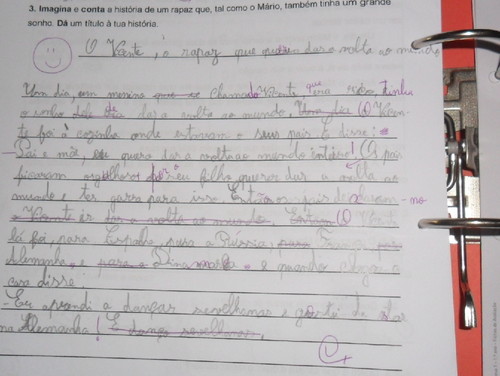 3. Imagina e conta a história de um rapaz que, tal como o Mário, também tinha um grande
sonho. Dá um título à tua história.
O Vicente, o rapaz que quer dar a volta ao mundo
Um dia, um menino chamado Vicente que tinha
o sonho de dar a volta ao mundo. Um dia (O) Vicen-
te foi à cozinha onde estavam os seus pais e disse:
- Pai e mãe, eu quero dar a volta ao mundo inteiro! (Os pais
ficaram orgulhosos por seu filho querer dar a volta ao
mundo e ter garra para isso. Então os pais deixaram-no
o Vicente ir dar a volta ao mundo. Então (O) Vicente
lá foi, para Espanha, para a Rússia, para França, para
Alemanha e para Dinamarca e quando chegou a
casa disse:
- Eu aprendi a dançar sevelhanas e gostei de estar
na Alemanha! E danço sevelhanas.